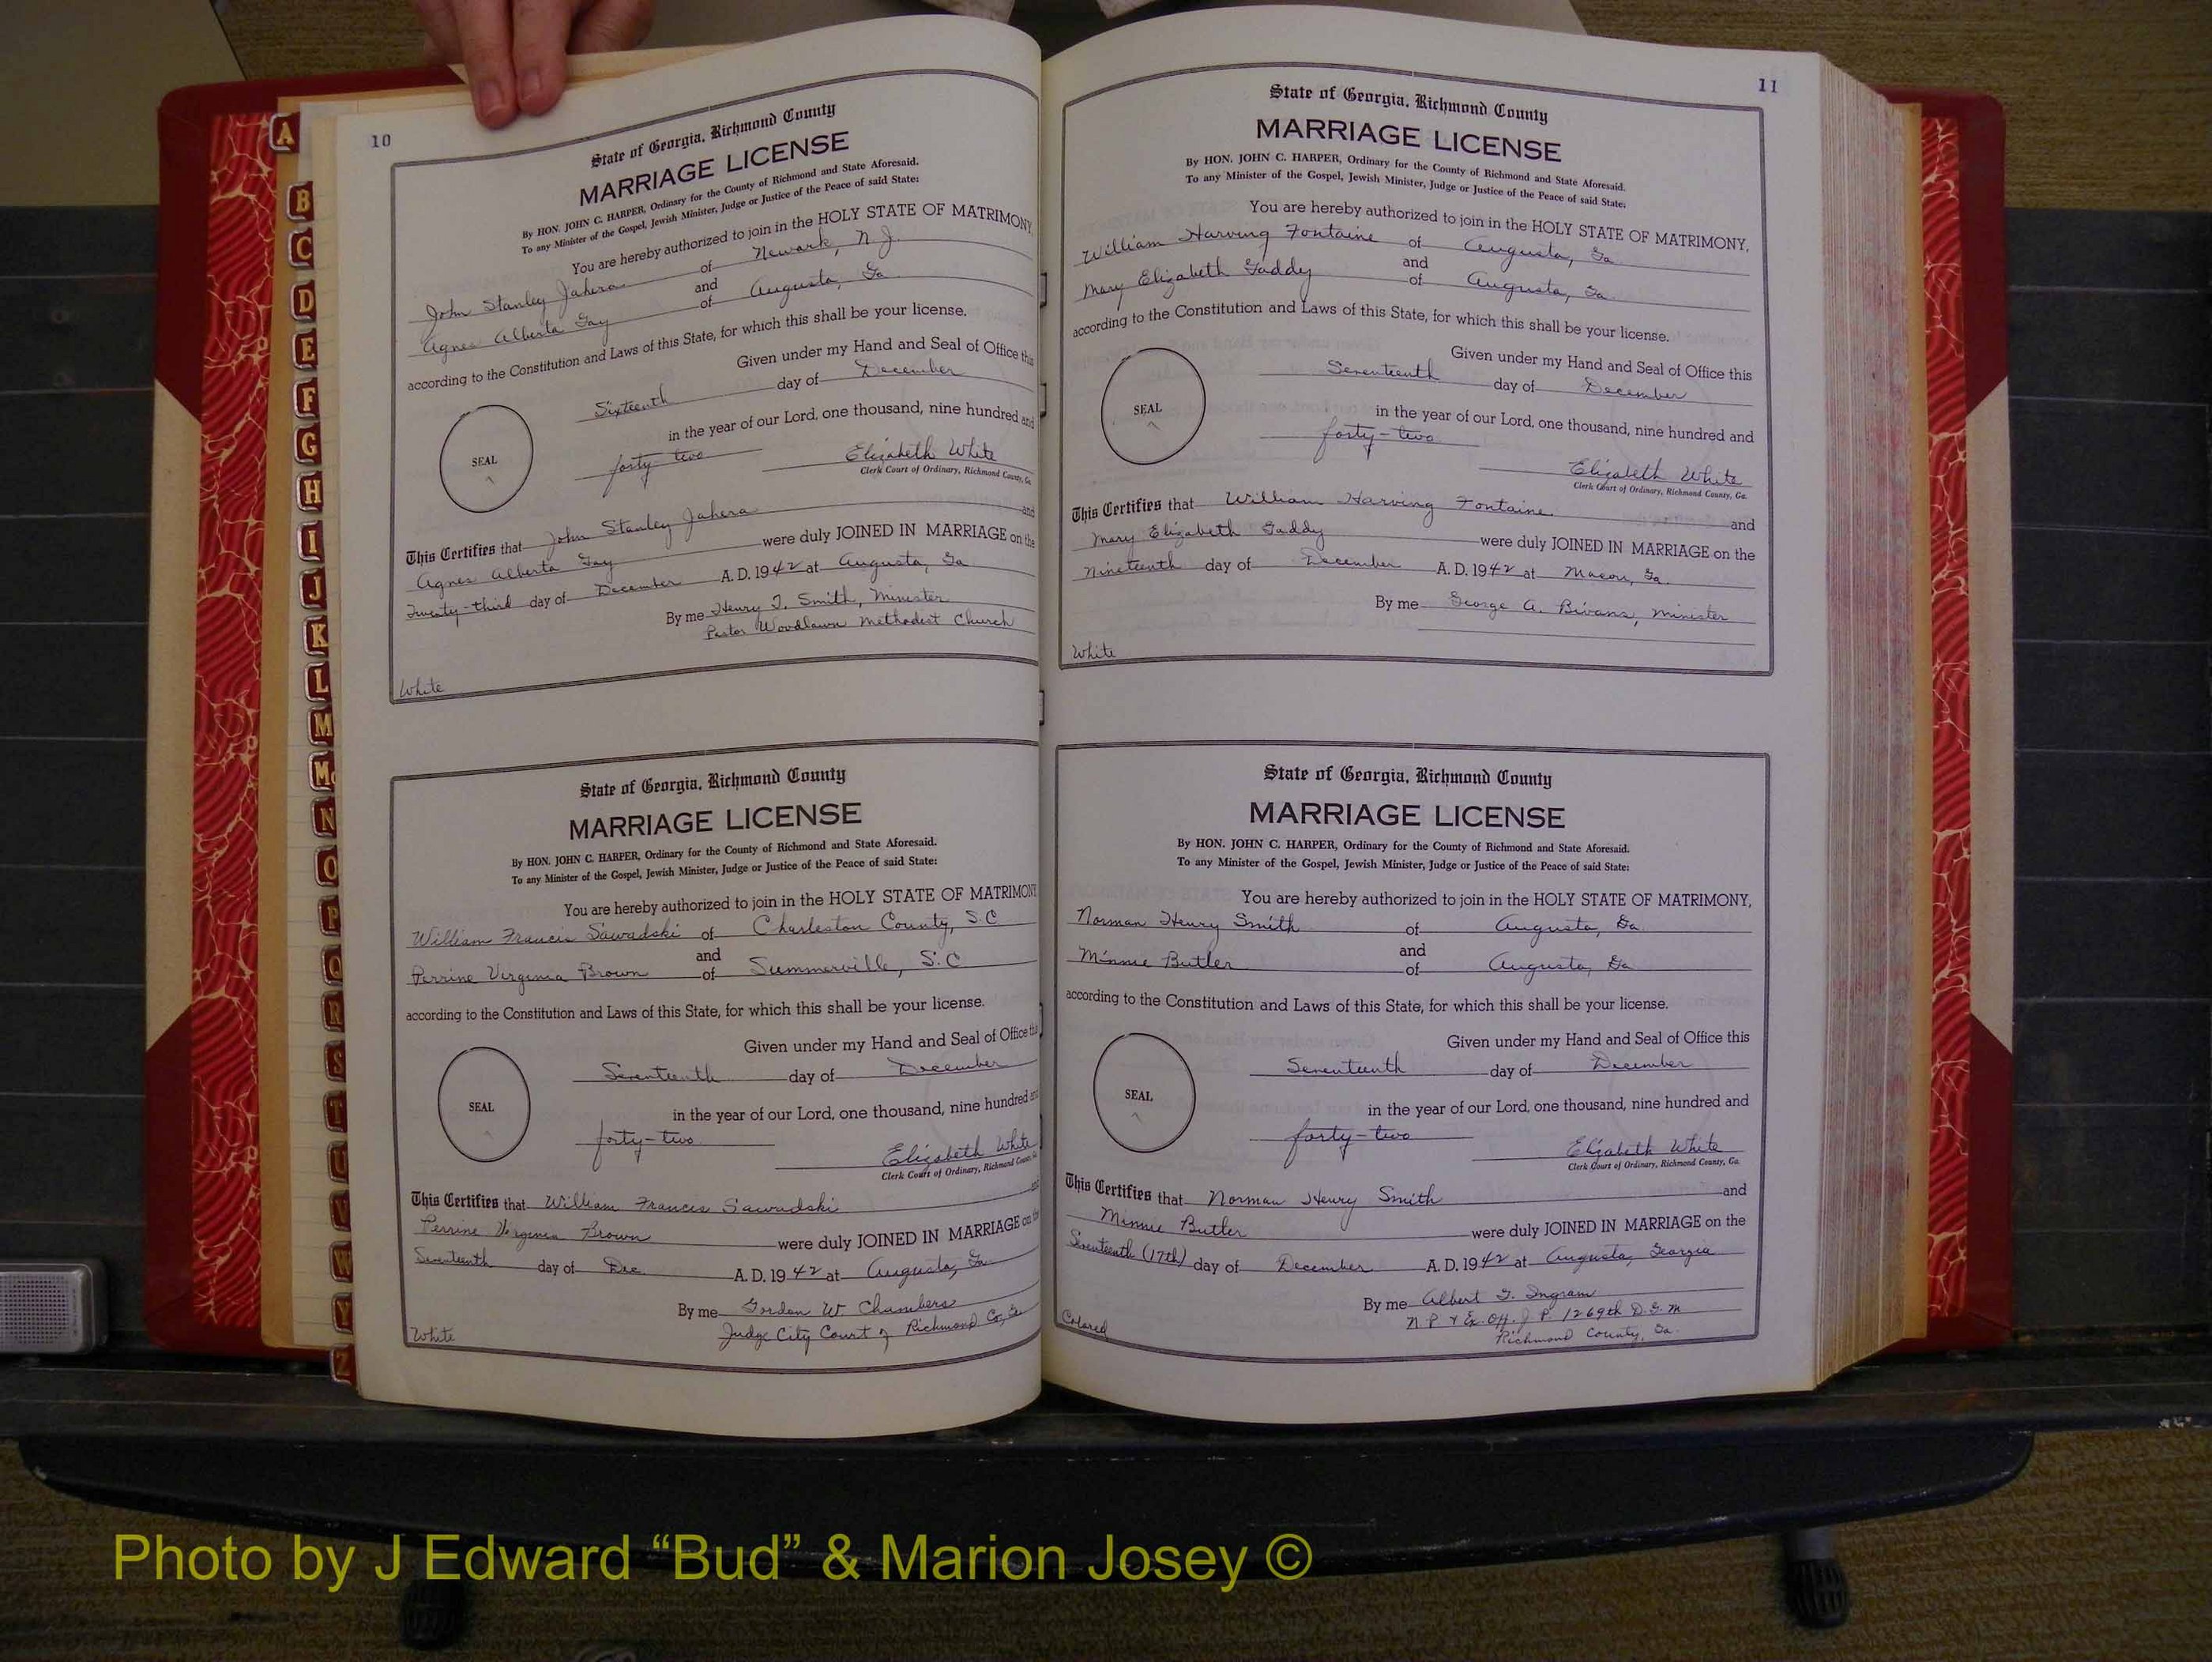 10
State of Georgia, Richmond County
MARRIAGE LICENSE
By HON. JOHN C. HARPER, Ordinary for the County of Richmond and State Aforesaid.
To any Minister of the Gospel, Jewish Minister, Judge or Justice of the Peace of said State:
You are hereby authorized to join in the HOLY STATE OF MATRIMONY,
John Stanley Jahera of Newark, N.J.
and
Agnes Alberta Gay of Augusta, Ga
according to the Constitution and Laws of this State, for which this shall be your license.
Given under my Hand and Seal of Office this
Sixteenth day of December
in the year of our Lord, one thousand, nine hundred and
forty-two
SEAL
Elizabeth White
Clerk Court of Ordinary, Richmond County, Ga.
This Certifies that John Stanley Jahera and
Agnes Alberta Gay were duly JOINED IN MARRIAGE on the
Twenty-third day of December A. D. 1942 at Augusta, Ga
By me Henry T. Smith, Minister
Pastor Woodlawn Methodist Church
White
State of Georgia, Richmond County
MARRIAGE LICENSE
By HON. JOHN C. HARPER, Ordinary for the County of Richmond and State Aforesaid.
To any Minister of the Gospel, Jewish Minister, Judge or Justice of the Peace of said State:
You are hereby authorized to join in the HOLY STATE OF MATRIMONY
William Francis Sawadski of Charleston County, S.C
and
Perrine Virginia Brown of Summerville, S.C
according to the Constitution and Laws of this State, for which this shall be your license.
Given under my Hand and Seal of Office this
Seventeenth day of December
in the year of our Lord, one thousand, nine hundred and
forty-two
SEAL
Elizabeth White
Clerk Court of Ordinary, Richmond County,
This Certifies that William Francis Sawadski and
Perrine Virginia Brown were duly JOINED IN MARRIAGE on the
Seventeenth day of Dec A. D. 1942 at Augusta, Ga
By me Gordon W. Chambers
Judge City Court of Richmond Co, Ga
White
11
State of Georgia, Richmond County
MARRIAGE LICENSE
By HON. JOHN C. HARPER, Ordinary for the County of Richmond and State Aforesaid.
To any Minister of the Gospel, Jewish Minister, Judge or Justice of the Peace of said State:
You are hereby authorized to join in the HOLY STATE OF MATRIMONY,
William Harving Fontaine of Augusta, Ga
and
Mary Elizabeth Gaddy of Augusta, Ga.
according to the Constitution and Laws of this State, for which this shall be your license.
Given under my Hand and Seal of Office this
Seventeenth day of December
in the year of our Lord, one thousand, nine hundred and
forty-two
SEAL
Elizabeth White
Clerk Court of Ordinary, Richmond County, Ga.
This Certifies that William Harving Fontaine and
Mary Elizabeth Gaddy were duly JOINED IN MARRIAGE on the
Nineteenth day of December A. D. 1942 at Macon, Ga.
By me George A. Bivans, Minister
White
State of Georgia, Richmond County
MARRIAGE LICENSE
By HON. JOHN C. HARPER, Ordinary for the County of Richmond and State Aforesaid.
To any Minister of the Gospel, Jewish Minister, Judge or Justice of the Peace of said State:
You are hereby authorized to join in the HOLY STATE OF MATRIMONY,
Norman Henry Smith of Augusta, Ga
and
Minnie Butler of Augusta, Ga
according to the Constitution and Laws of this State, for which this shall be your license.
Given under my Hand and Seal of Office this
Seventeenth day of December
in the year of our Lord, one thousand, nine hundred and
forty-two
SEAL
Elizabeth White
Clerk Court of Ordinary, Richmond County, Ga.
This Certifies that Norman Henry Smith and
Minnie Butler were duly JOINED IN MARRIAGE on the
Seventeenth (17th) day of December A. D. 1942 at Augusta, Georgia
By me Albert G. Ingram
N. P & Ex. Off. J P. 1269th D. G. M
Richmond County, Ga.
Colored
A
B
C
D
E
F
G
H
I
J
K
L
M
Mc
N
O
P
Q
R
S
T
U
V
W
Y
Z
Photo by J Edward “Bud” & Marion Josey ©